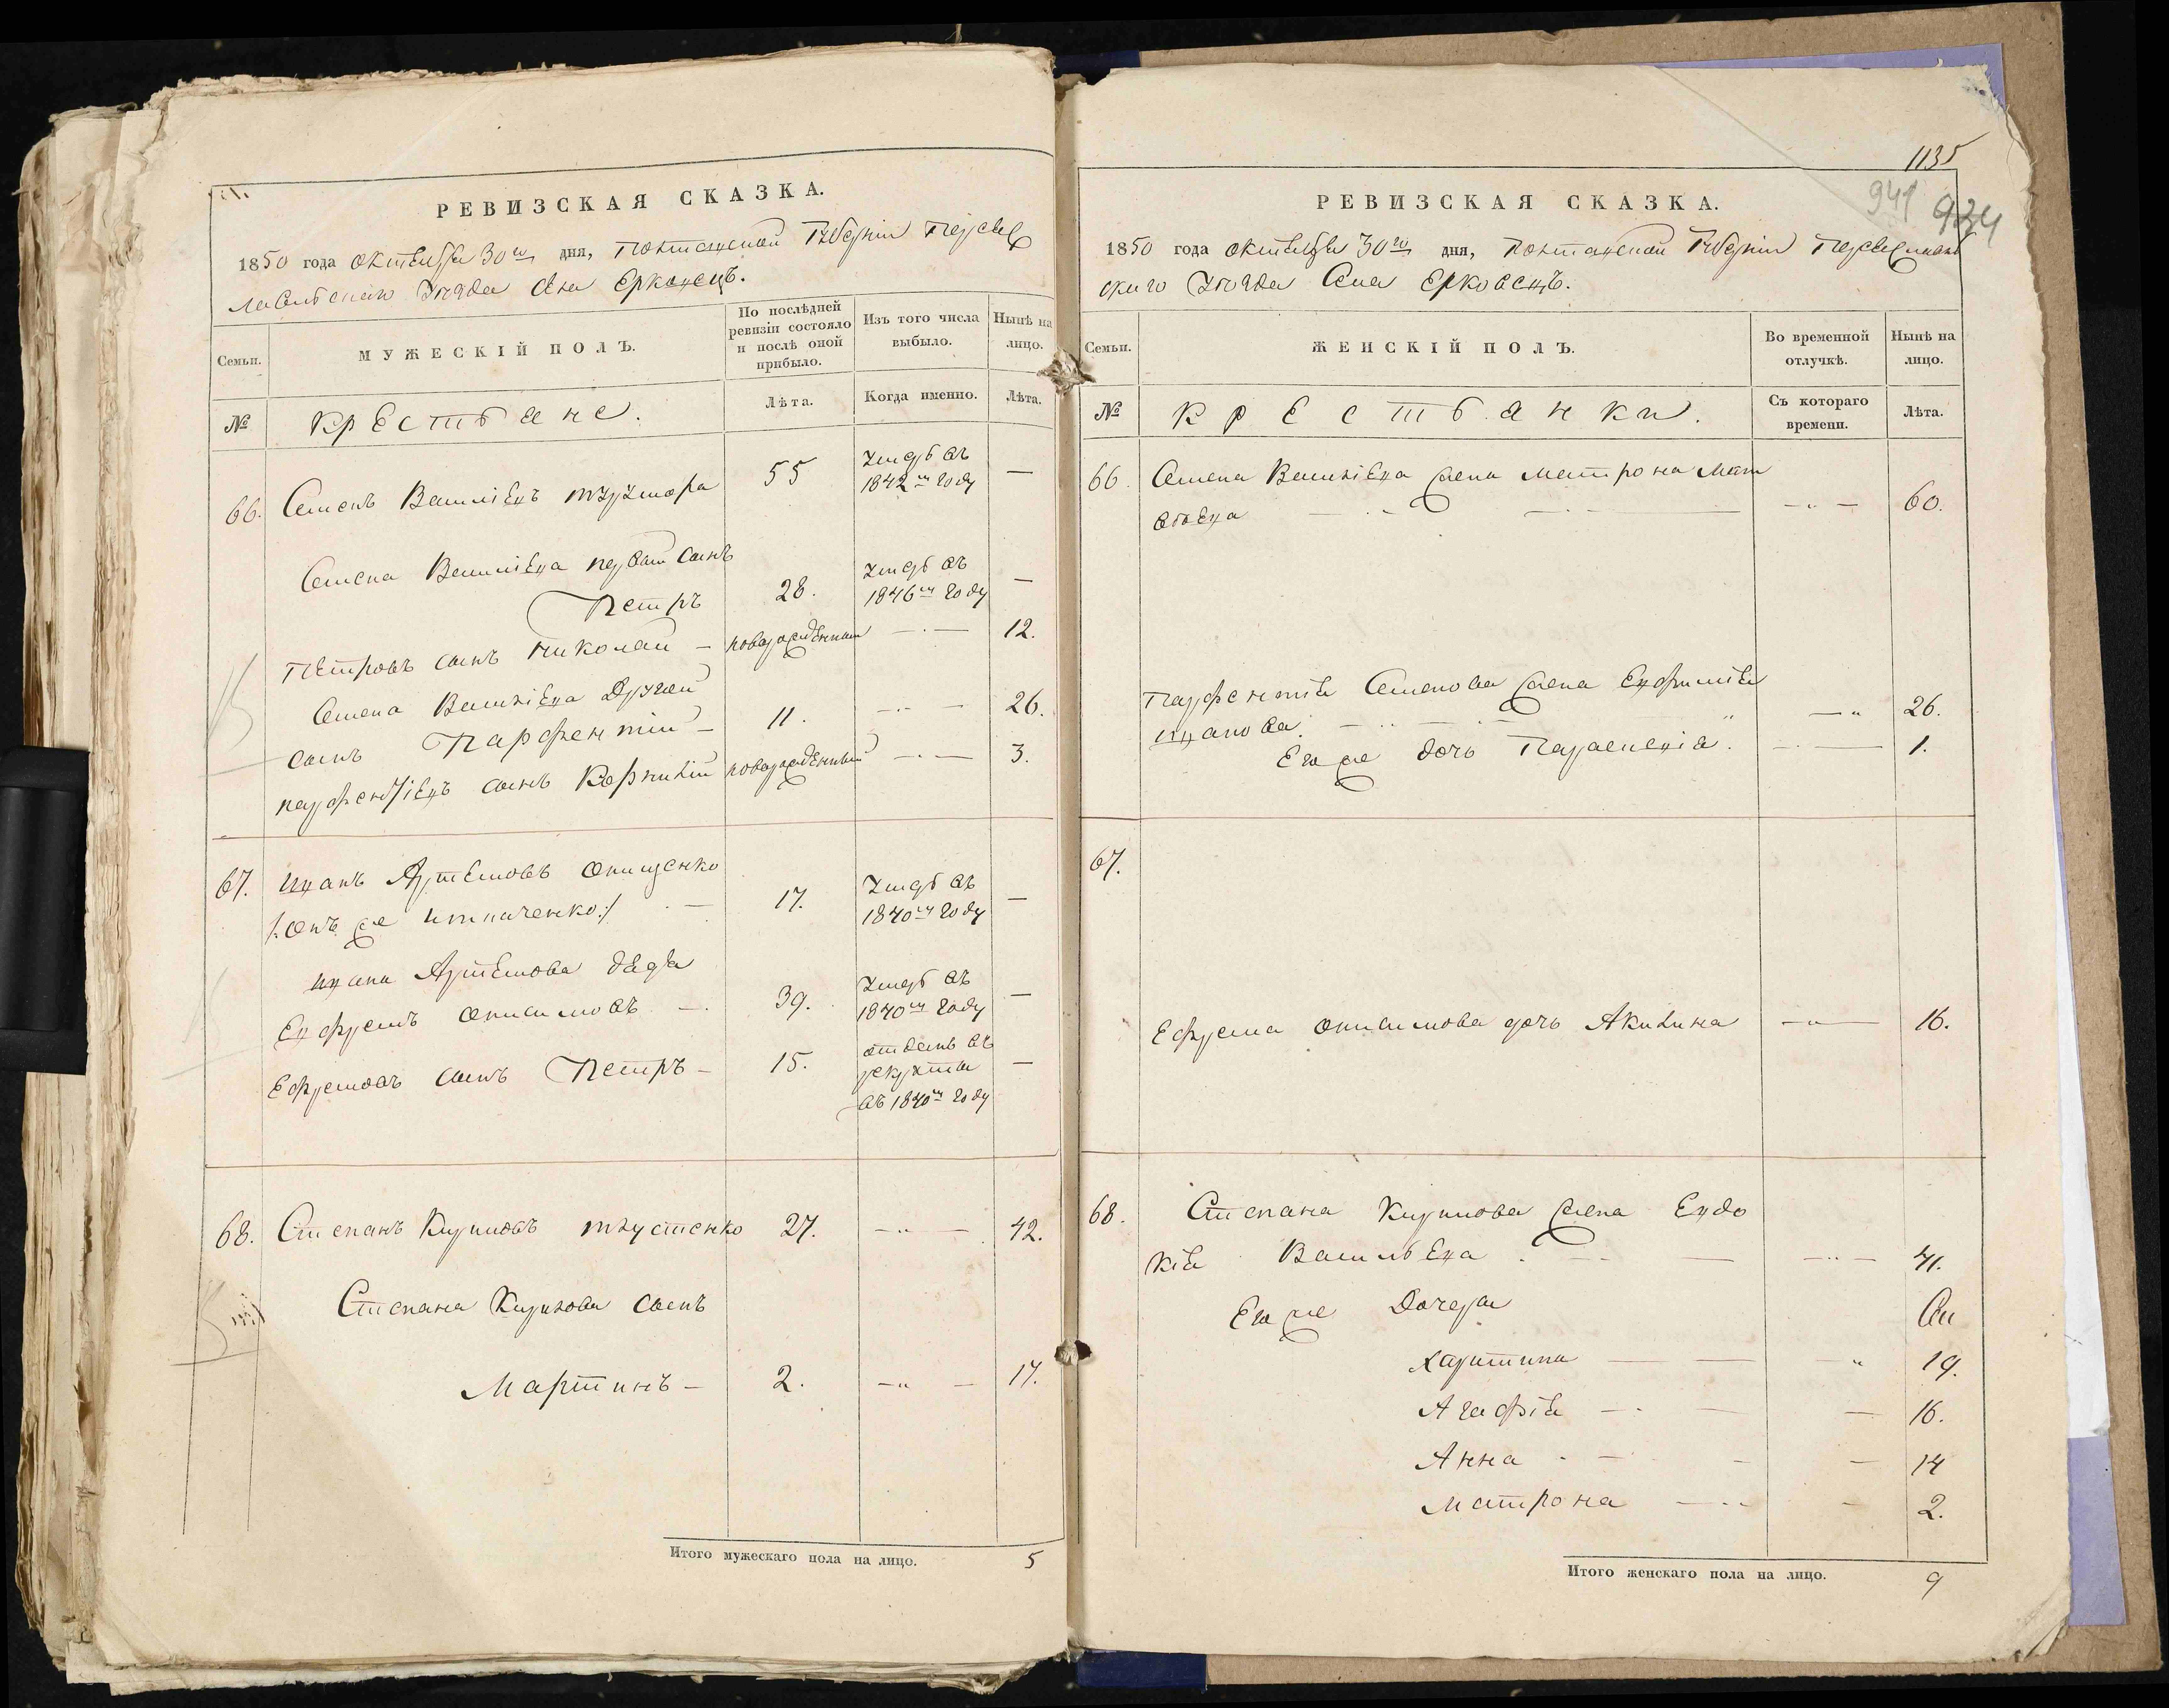 РЕВИЗСКАЯ СКАЗКА.
1850 года октября 30го дня, Полтавской Губерніи Переяс
лавскаго Уѣзда Села Ерковецъ.
Семьи.
МУЖЕСКІЙ ПОЛЪ.
По послѣдней ревизіи состояло и послѣ оной прибыло.
Изъ того числа выбыло.
Нынѣ на лицо.
№
Крестьяне.
Лѣта.
Когда именно.
Лѣта.
66. Семенъ Василіевъ 55 умеръ въ 1842м году —
Семена Василіева первый сынъ
Петръ 28. умеръ въ 1846м году —
Петровъ сынъ Николай — новорожденный — 12.
Семена Василіева другой
сынъ Парфентій — 11. — 26.
Парфентіевъ сынъ Корнилій новорожденный — 3.
67. Иванъ Артемовъ Онищенко
/:онъ же Игначенко:/ — 17. умеръ въ 1840м году —
Ивана Артемова дядя
Евфремъ Онисимовъ — 39. умеръ въ 1840м году —
Ефремовъ сынъ Петръ — 15. отданъ въ рекруты въ 1840м году —
68. Степанъ Кириловъ Тлустенко 27. — 42.
Степана Кирилова сынъ
Мартинъ — 2. — 17.
Итого мужескаго пола на лицо. 5
1135
941
934
РЕВИЗСКАЯ СКАЗКА.
1850 года октября 30го дня, Полтавской Губерніи Переяславль
скаго Уѣзда Села Ерковецъ.
Семьи.
ЖЕНСКІЙ ПОЛЪ.
Во временной отлучкѣ.
Нынѣ на лицо.
№
Крестьянки.
Съ котораго времени.
Лѣта.
66. Семена Василіева жена Матрона Мат
вѣева — 60.
Парфентія Семенова жена Евфимія
Иванова. — 26.
Его же дочь Параскевія. — 1.
67.
Ефрема Онисимова дочь Акилина — 16.
68. Степана Кирилова жена Евдо
кія Васильева. — 41.
Его же Дочери
Харитина — 19.
Агафія — 16.
Анна — 14
Матрона — 2.
Итого женскаго пола на лицо. 9